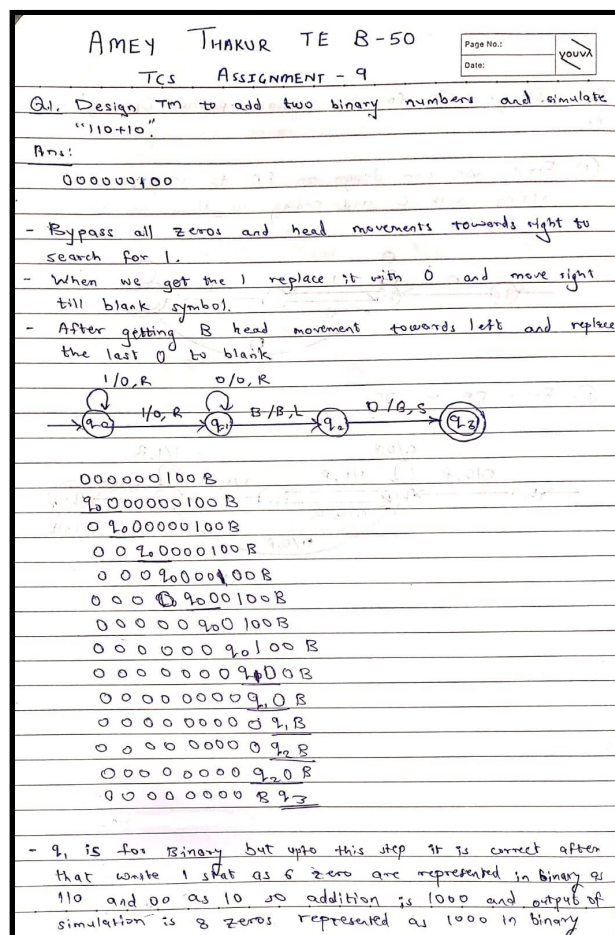 AMEY THAKUR TE B-50
Page No.:
Date:
YOUVA
TCS ASSIGNMENT - 9
Q1. Design TM to add two binary numbers and simulate
"110+10".
Ans:
000000100
- Bypass all zeros and head movements towards right to
search for 1.
- When we get the 1 replace it with 0 and move right
till blank symbol.
- After getting B head movement towards left and replace
the last 0 to blank
1/0, R 0/0, R
q0 1/0, R q1 B/B, L q2 0/B, S q3
000000100B
q0000000100B
0q000000100B
00q00000100B
000q0000100B
0000q000100B
00000q00100B
000000q0100B
0000000q100B
00000000q10B
000000000q1B
000000000q2B
00000000q20B
00000000Bq3
- q1 is for Binary but upto this step it is correct after
that write 1 stat as 6 zero are represented in binary as
110 and 00 as 10 so addition is 1000 and output of
simulation is 8 zeros represented as 1000 in binary